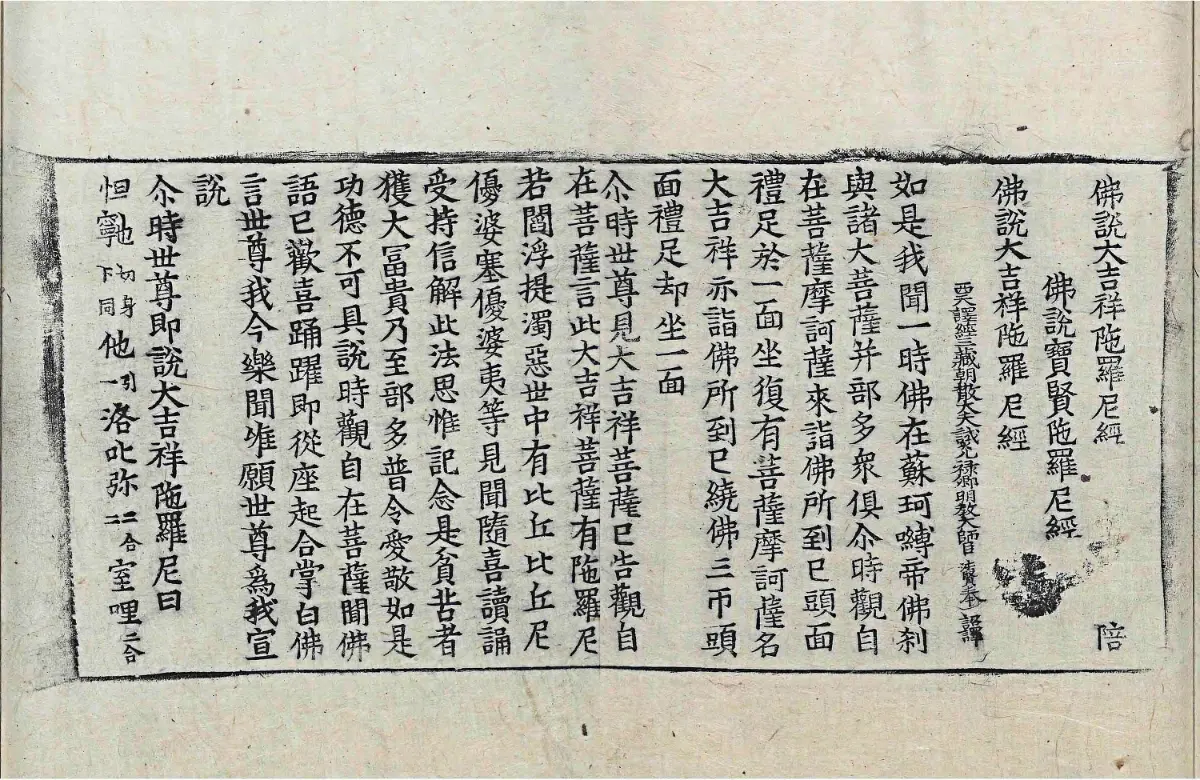 佛說大吉祥陁羅尼經 陪
佛說寶賢陁羅尼經
佛說大吉祥陁羅尼經
西天譯經三藏朝散大夫試光祿卿明教大師臣法賢奉 詔譯
如是我聞一時佛在蘇珂嚩帝佛刹
與諸大菩薩并部多衆俱尒時觀自
在菩薩摩訶薩來詣佛所到已頭面
禮足於一面坐復有菩薩摩訶薩名
大吉祥亦詣佛所到已繞佛三帀頭
面禮足却坐一面
尒時世尊見大吉祥菩薩已告觀自
在菩薩言此大吉祥菩薩有陁羅尼
若閻浮提濁惡世中有比丘比丘尼
優婆塞優婆夷等見聞隨喜讀誦
受持信解此法思惟記念是貧苦者
獲大冨貴乃至部多普令愛敬如是
功德不可具說時觀自在菩薩聞佛
語已歡喜踊躍即從座起合掌白佛
言世尊我今樂聞唯願世尊爲我宣
說
尒時世尊即說大吉祥陁羅尼曰
怛寧也切身下同他引一洛叱弥二合二室哩二合